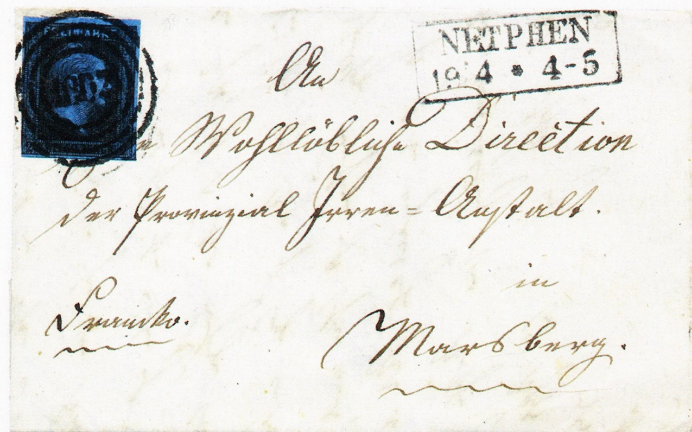 NETPHEN
19 4 * 4-5
An
Wohllöbliche Direction
der Provinzial Irren-Anstalt.
in
Franko.
Marsberg.